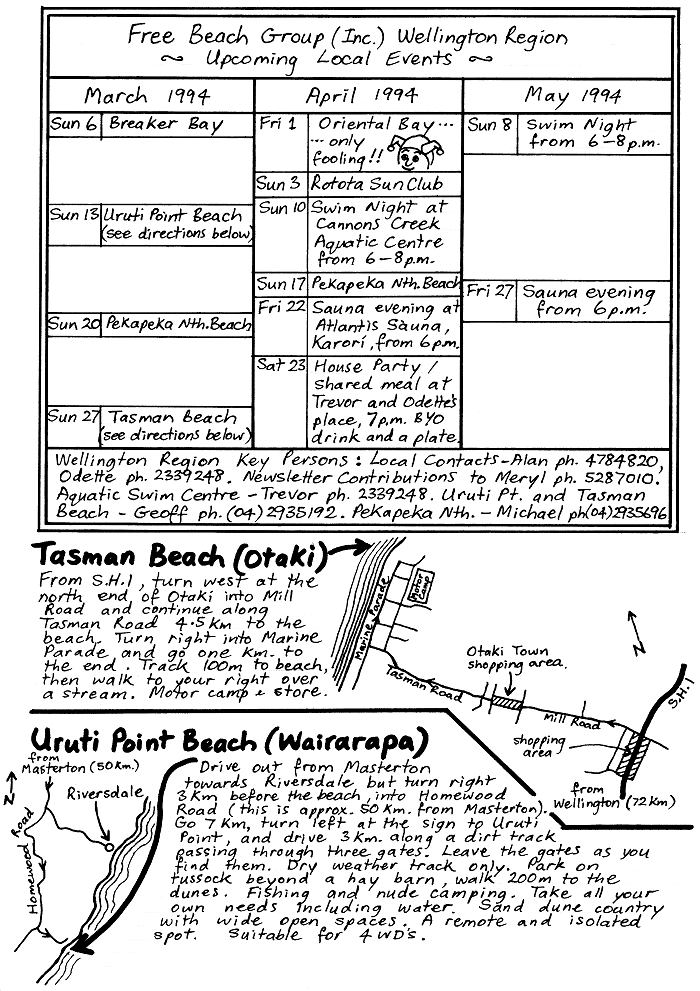 Free Beach Group (Inc.) Wellington Region
~ Upcoming Local Events ~
March 1994
Sun 6 Breaker Bay
Sun 13 Uruti Point Beach
(see directions below)
Sun 20 Pekapeka Nth. Beach
Sun 27 Tasman Beach
(see directions below)
April 1994
Fri 1 Oriental Bay ...
... only
fooling!!
Sun 3 Rotota Sun Club
Sun 10 Swim Night at
Cannons Creek
Aquatic Centre
from 6-8p.m.
Sun 17 Pekapeka Nth. Beach
Fri 22 Sauna evening at
Atlantis Sauna,
Karori, from 6p.m.
Sat 23 House Party /
shared meal at
Trevor and Odette's
place, 7p.m. BYO
drink and a plate.
May 1994
Sun 8 Swim Night
from 6-8p.m.
Fri 27 Sauna evening
from 6p.m.
Wellington Region Key Persons: Local Contacts-Alan ph. 4784820,
Odette ph. 2339248. Newsletter Contributions to Meryl ph. 5287010.
Aquatic Swim Centre - Trevor ph. 2339248. Uruti Pt. and Tasman
Beach - Geoff ph. (04) 2935192. Pekapeka Nth. - Michael ph(04)2935696
Tasman Beach (Otaki)
From S.H.1, turn west at the
north end of Otaki into Mill
Road and continue along
Tasman Road 4.5Km to the
beach. Turn right into Marine
Parade and go one Km. to
the end. Track 100m to beach,
then walk to your right over
a stream. Motor camp & store.
Marine Parade
Motor
Camp
Tasman Road
Otaki Town
shopping area.
Mill Road
shopping
area
N
S.H.1
from
Wellington (72Km)
Uruti Point Beach (Wairarapa)
from
Masterton (50Km.)
N
Riversdale
Homewood Road
Drive out from Masterton
towards Riversdale but turn right
3Km before the beach, into Homewood
Road (this is approx. 50Km. from Masterton).
Go 7Km, turn left at the sign to Uruti
Point, and drive 3Km along a dirt track
passing through three gates. Leave the gates as you
find them. Dry weather track only. Park on
tussock beyond a hay barn, walk 200m to the
dunes. Fishing and nude camping. Take all your
own needs including water. Sand dune country
with wide open spaces. A remote and isolated
spot. Suitable for 4WD's.